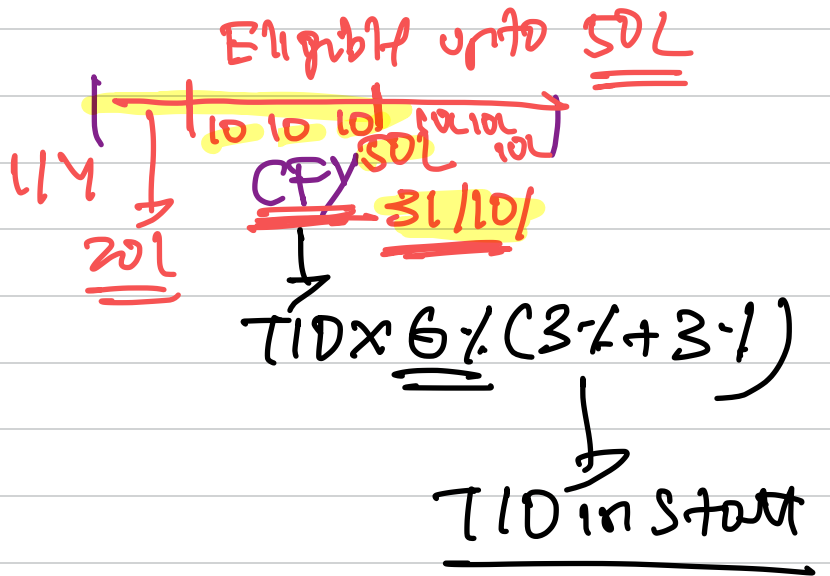 Eligible upto 50L
10 10 10 10L 10L 10L
50L
1/4
CFY
31/10/
20L
T/O x 6% (3% + 3%)
T/O in Statt